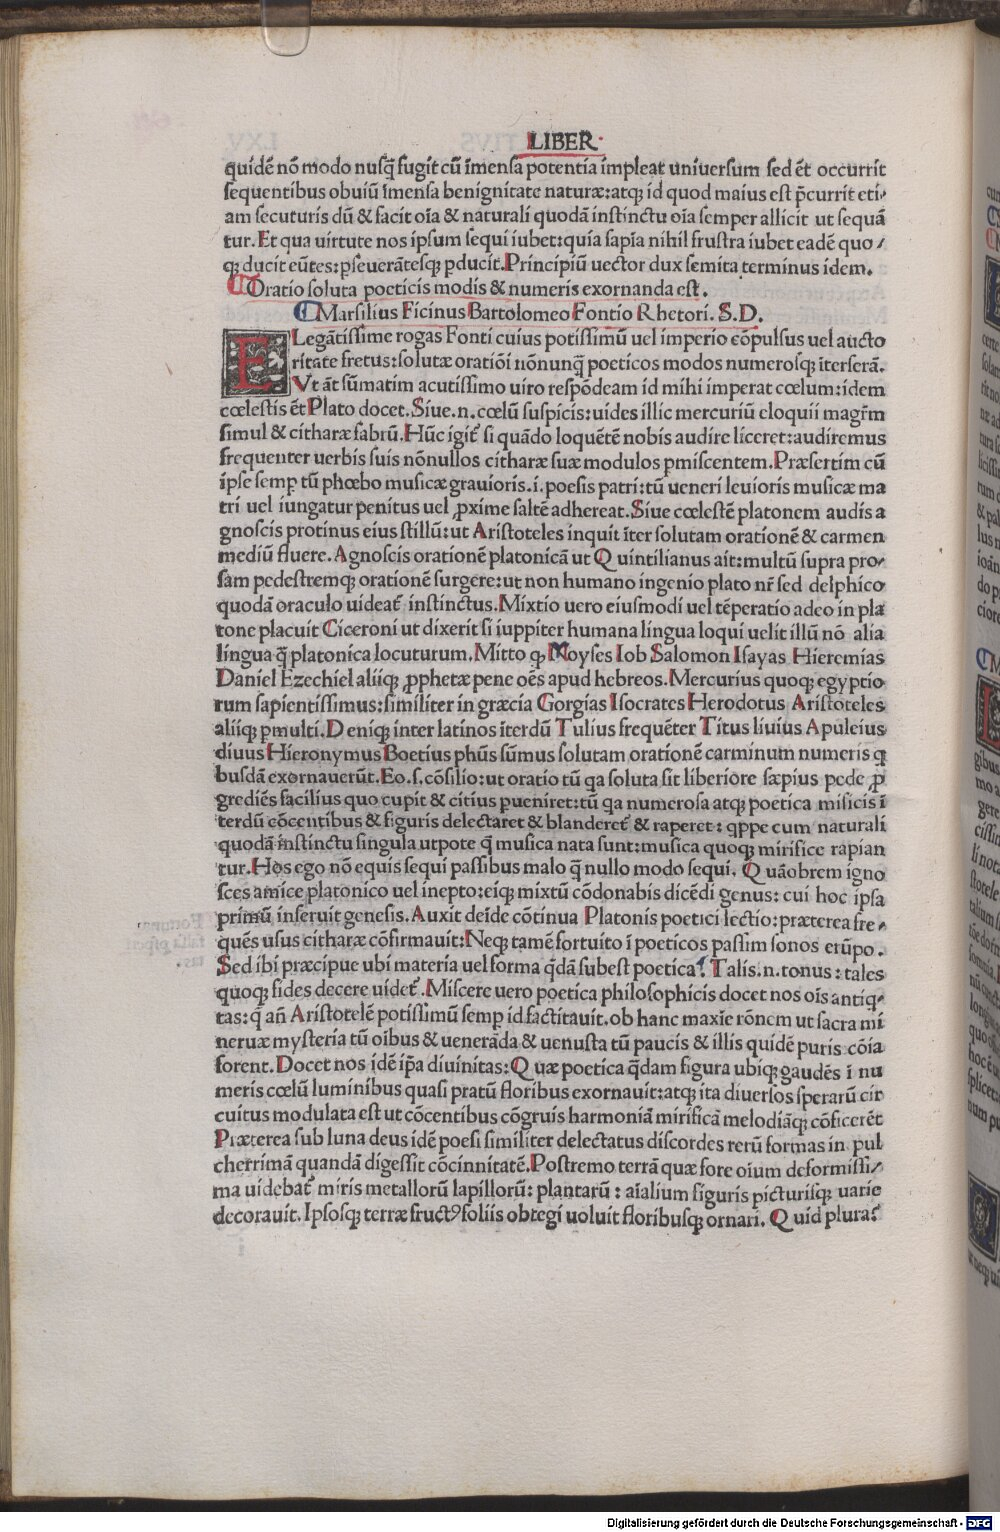 LIBER
quidē nō modo nusq̄ fugit cū īmensa potentia impleat uniuersum sed ēt occurrit
sequentibus obuiū īmensa benignitate naturæ:atq; id quod maius est p̄currit eti⸗
am secuturis dū & facit oīa & naturali quodā instinctu oīa semper allicit ut sequā
tur. Et qua uirtute nos ipsum sequi iubet:quia sapīa nihil frustra iubet eadē quo⸗
q; ducit eūtes:p̱seuerātesq; p̱ducit.Principiū uector dux semita terminus idem.
Oratio soluta poeticis modis & numeris exornanda est.
Marsilius Ficinus Bartolomeo Fontio Rhetori. S.D.
ELegātissime rogas Fonti cuius potissimū uel imperio cōpulsus uel aucto
ritate fretus:solutæ oratiōi nōnunq̄ poeticos modos numerosq; īterserā.
Vt āt sūmatim acutissimo uiro respōdeam id mihi imperat cœlum:idem
cœlestis ēt Plato docet. Siue.n.cœlū suspicis:uides illic mercuriū eloquii magr̄m
simul & citharæ fabrū.Hūc igit̄ si quādo loquētē nobis audire liceret:audiremus
frequenter uerbis suis nōnullos citharæ suæ modulos p̱miscentem.Præsertim cū
ipse semp̱ tū phœbo musicæ grauioris.i.poesis patri:tū ueneri leuioris musicæ ma
tri uel iungatur penitus uel ꝓxime saltē adhereat.Siue cœlestē platonem audis a
gnoscis protinus eius stillū:ut Aristoteles inquit īter solutam orationē & carmen
mediū fluere. Agnoscis orationē platonicā ut Quintilianus ait:multū supra pro⸗
sam pedestremq; orationē surgere:ut non humano ingenio plato nr̄ sed delphico
quodā oraculo uideat̄ instinctus.Mixtio uero eiusmodi uel tēperatio adeo in pla
tone placuit Ciceroni ut dixerit si iuppiter humana lingua loqui uelit illū nō alia
lingua q̄ platonica locuturum.Mitto qp Moyses Iob Salomon Isayas Hieremias
Daniel Ezechiel aliiq; ꝓphetæ pene oēs apud hebreos.Mercurius quoq; egyptio
rum sapientissimus:similiter in græcia Gorgias Isocrates Herodotus Aristoteles
aliiq; p̱multi.Deniq; inter latinos īterdū Tulius frequēter Titus liuius Apuleius
diuus Hieronymus Boetius phūs sūmus solutam orationē carminum numeris q
busdā exornauerūt.Eo.s.cōsilio:ut oratio tū qa soluta sit liberiore sæpius pede ꝓ
grediēs facilius quo cupit & citius p̱ueniret:tū qa numerosa atq; poetica misicis ī
terdū cōcentibus & figuris delectaret & blanderet̄ & raperet: qppe cum naturali
quodā instinctu singula utpote q̄ musica nata sunt:musica quoq; mirifice rapian
tur.Hos ego nō equis sequi passibus malo q̄ nullo modo sequi. Quāobrem igno
sces amice platonico uel inepto:eiq; mixtū cōdonabis dicēdi genus: cui hoc ipsa
primū inseruit genesis. Auxit deīde cōtinua Platonis poetici lectio:præterea fre⸗
quēs usus citharæ cōfirmauit:Neq; tamē fortuito ī poeticos passim sonos erūpo.
Sed ibi præcipue ubi materia uel forma q̄dā subest poetica. Talis.n.tonus: tales
quoq; fides decere uidet̄.Miscere uero poetica philosophicis docet nos oīs antiq⸗
tas:q̄ añ Aristotelē potissimū semp̱ id factitauit.ob hanc maxīe rōnem ut sacra mi
neruæ mysteria tū oībus & uenerāda & uenusta tū paucis & illis quidē puris cōia
forent.Docet nos idē ip̄a diuinitas:Quæ poetica q̄dam figura ubiq; gaudēs ī nu
meris cœlū luminibus quasi pratū floribus exornauit:atq; ita diuersos sperarū cir
cuitus modulata est ut cōcentibus cōgruis harmoniā mirificā melodiāq; cōficerēt
Præterea sub luna deus idē poesi similiter delectatus discordes rerū formas in pul
cherrimā quandā digessit cōcinnitatē.Postremo terrā quæ fore oīum deformissi⸗
ma uidebat̄ miris metallorū lapillorū: plantarū: aīalium figuris picturisq; uarie
decorauit.Ipsosq; terræ fructꝰ foliis obtegi uoluit floribusq; ornari. Quid plura?
Digitalisierung gefördert durch die Deutsche Forschungsgemeinschaft - DFG